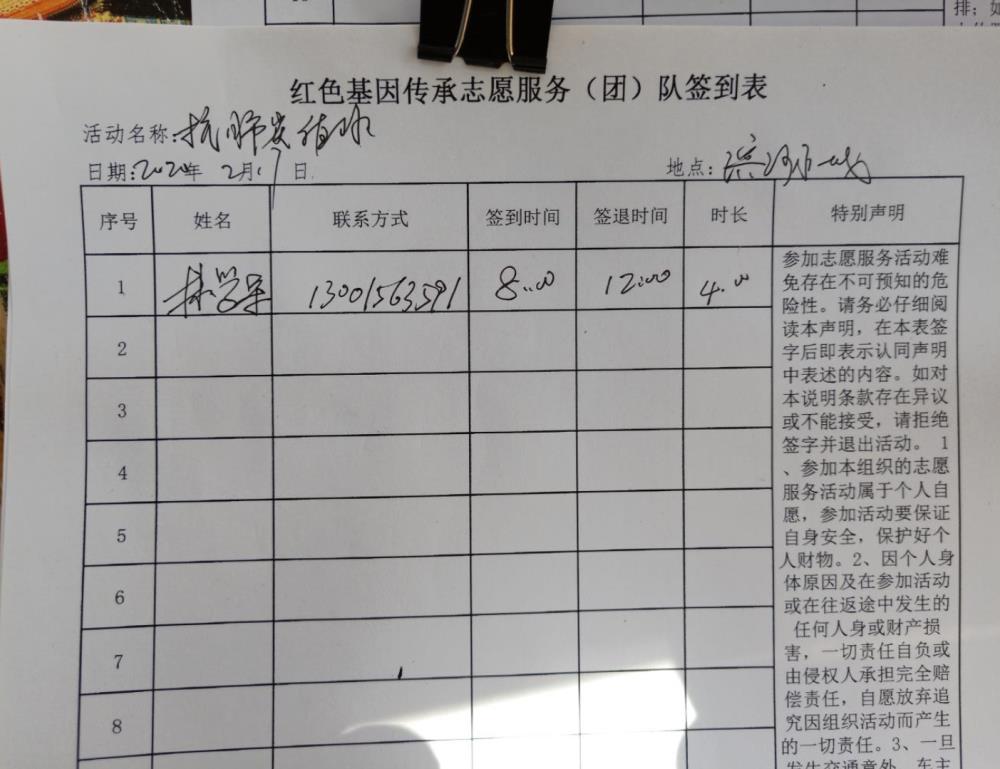 排;如
红色基因传承志愿服务（团）队签到表
活动名称:
日期:2020年 2月17日.
地点:
序号 姓名 联系方式 签到时间 签退时间 时长 特别声明
1 13001563591 8:00 12:00 4.00
2
3
4
5
6
7
8
参加志愿服务活动难
免存在不可预知的危
险性。请务必仔细阅
读本声明，在本表签
字后即表示认同声明
中表述的内容。如对
本说明条款存在异议
或不能接受，请拒绝
签字并退出活动。 1
、参加本组织的志愿
服务活动属于个人自
愿，参加活动要保证
自身安全，保护好个
人财物。2、因个人身
体原因及在参加活动
或在往返途中发生的
任何人身或财产损
害，一切责任自负或
由侵权人承担完全赔
偿责任，自愿放弃追
究因组织活动而产生
的一切责任。3、一旦
发生交通意外，车主